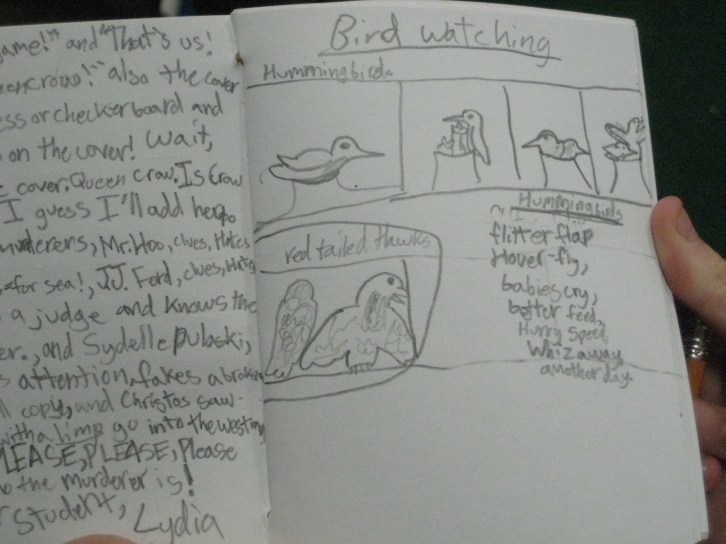 game!" and "That's us!
Queencrow!" also the cover
chess or checkerboard and
on the cover! Wait,
cover. Queen crow. Is Crow
I guess I'll add her
murderers, Mr. Hoo, clues, Hates
for sea!, J.J. Ford, clues, Hates
a judge and knows the
er., and Sydelle Pulaski,
s attention, fakes a broken
ll copy, and Christos saw
with a limp go into the westing
PLEASE, PLEASE, Please
o the murderer is!
r student, Lydia
Bird watching
Hummingbirds
red tailed Hawks
Hummingbirds
flitter flap
Hover-fly,
babies cry,
better feed,
Hurry Speed,
Whiz away
another day.